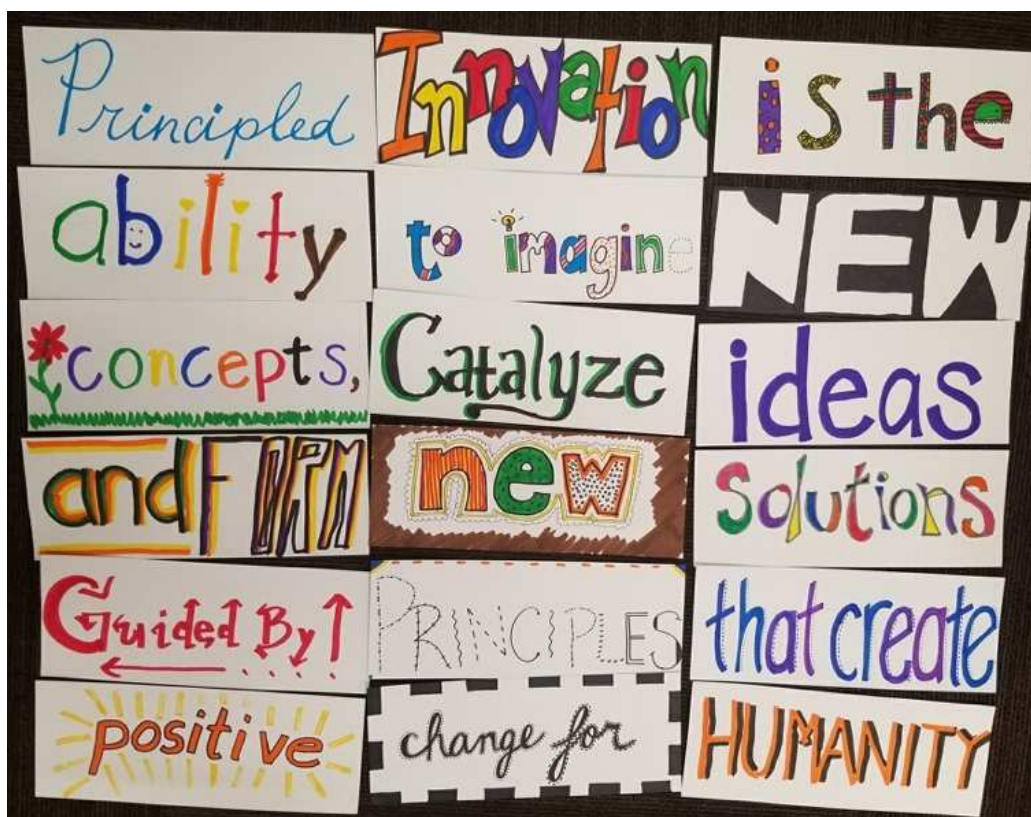 Principled Innovation is the
ability to imagine NEW
concepts, Catalyze ideas
and FORM new Solutions
Guided By PRINCIPLES that create
positive change for HUMANITY